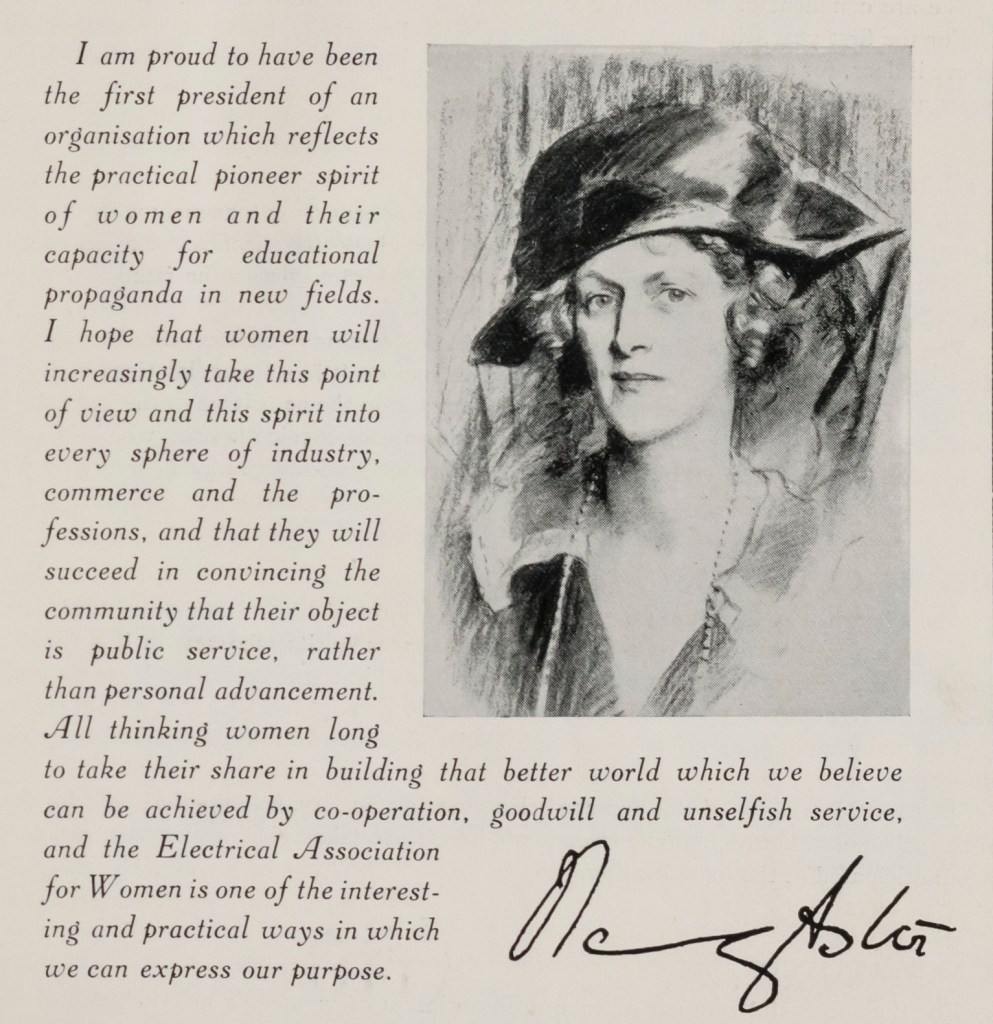 I am proud to have been
the first president of an
organisation which reflects
the practical pioneer spirit
of women and their
capacity for educational
propaganda in new fields.
I hope that women will
increasingly take this point
of view and this spirit into
every sphere of industry,
commerce and the pro-
fessions, and that they will
succeed in convincing the
community that their object
is public service, rather
than personal advancement.
All thinking women long
to take their share in building that better world which we believe
can be achieved by co-operation, goodwill and unselfish service,
and the Electrical Association
for Women is one of the interest-
ing and practical ways in which
we can express our purpose.
Nancy Astor